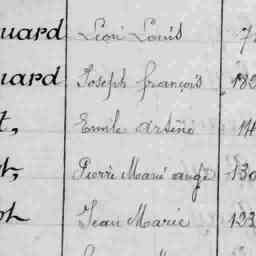 uard Léon Louis 7
uard Joseph françois 183
t, Emile arsène 14
t, Pierre Marie ange 130
ot Jean Marie 133